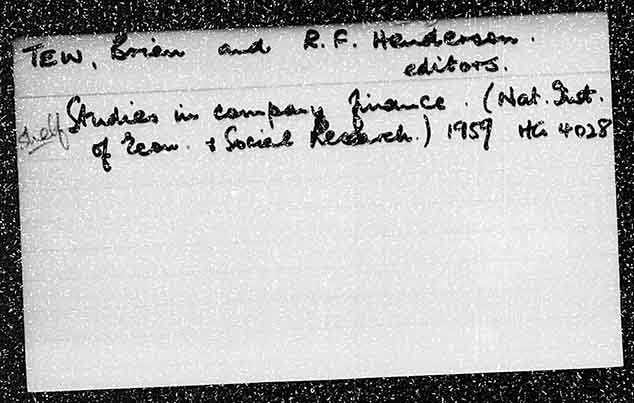 TEW, Brian and R.F. Henderson.
editors.
Shelf Studies in company finance. (Nat. Inst.
of Econ. + Social Research.) 1959 HG 4028